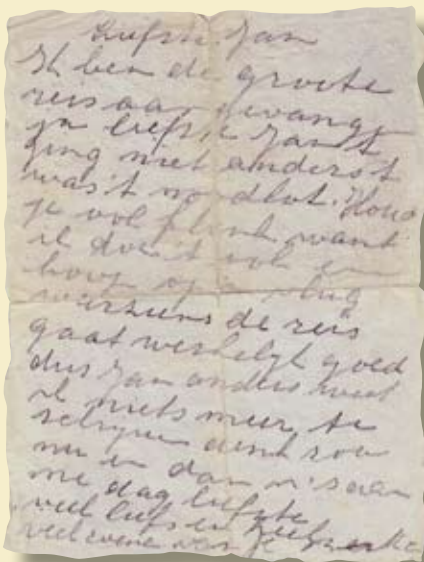 Liefste Jan
Ik ben de groote
reis aangevangt
ja liefste Jan t
ging niet anders t
was't noodlot. Hou
je vol flink want
ik doe't ook en
hoop op n vlug
weerziens de reis
gaat werkelijk goed
dus Jan anders weet
ik niets meer te
schrijven denk zoo
nu en dan n's aan
me dag liefste
veel liefs en
veel van je